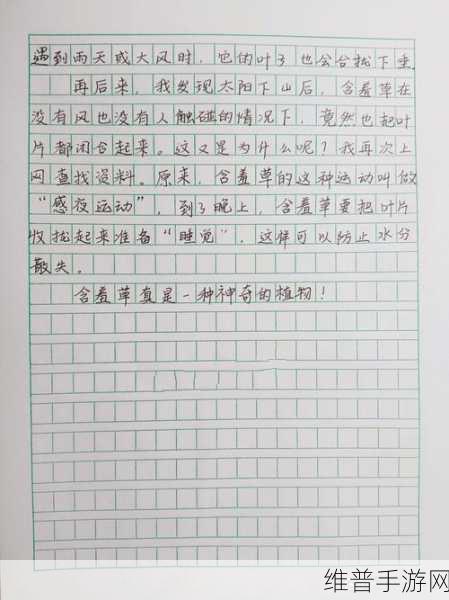 遇到雨天或大风时，它的叶子也会合拢下垂
再后来，我发现太阳下山后，含羞草在
没有风也没有人触碰的情况下，竟然也把叶
片都闭合起来。这又是为什么呢？我再次上
网查找资料。原来，含羞草的这种运动叫做
“感夜运动”，到了晚上，含羞草要把叶片
收拢起来准备“睡觉”，这样可以防止水分
散失。
含羞草真是一种神奇的植物！
维普手游网